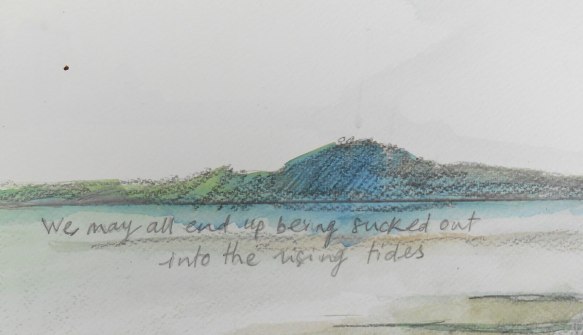 We may all end up being sucked out
into the rising tides